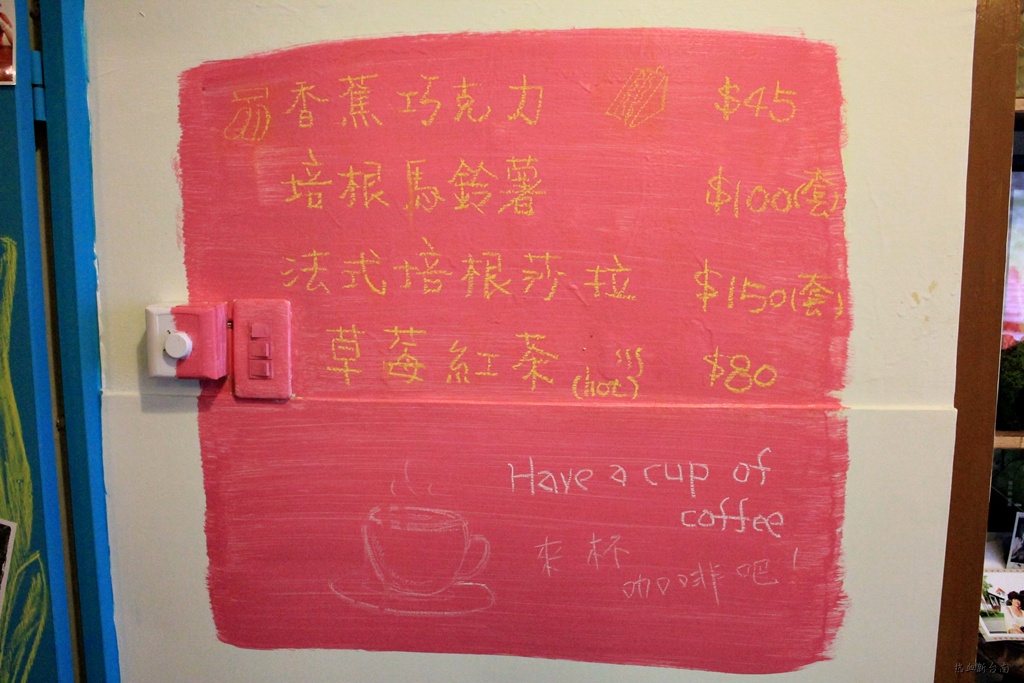 香蕉巧克力 $45
培根馬鈴薯 $100(套)
法式培根莎拉 $150(套)
草莓紅茶(hot) $80
Have a cup of
coffee
來杯
咖啡吧!
熱血新台南